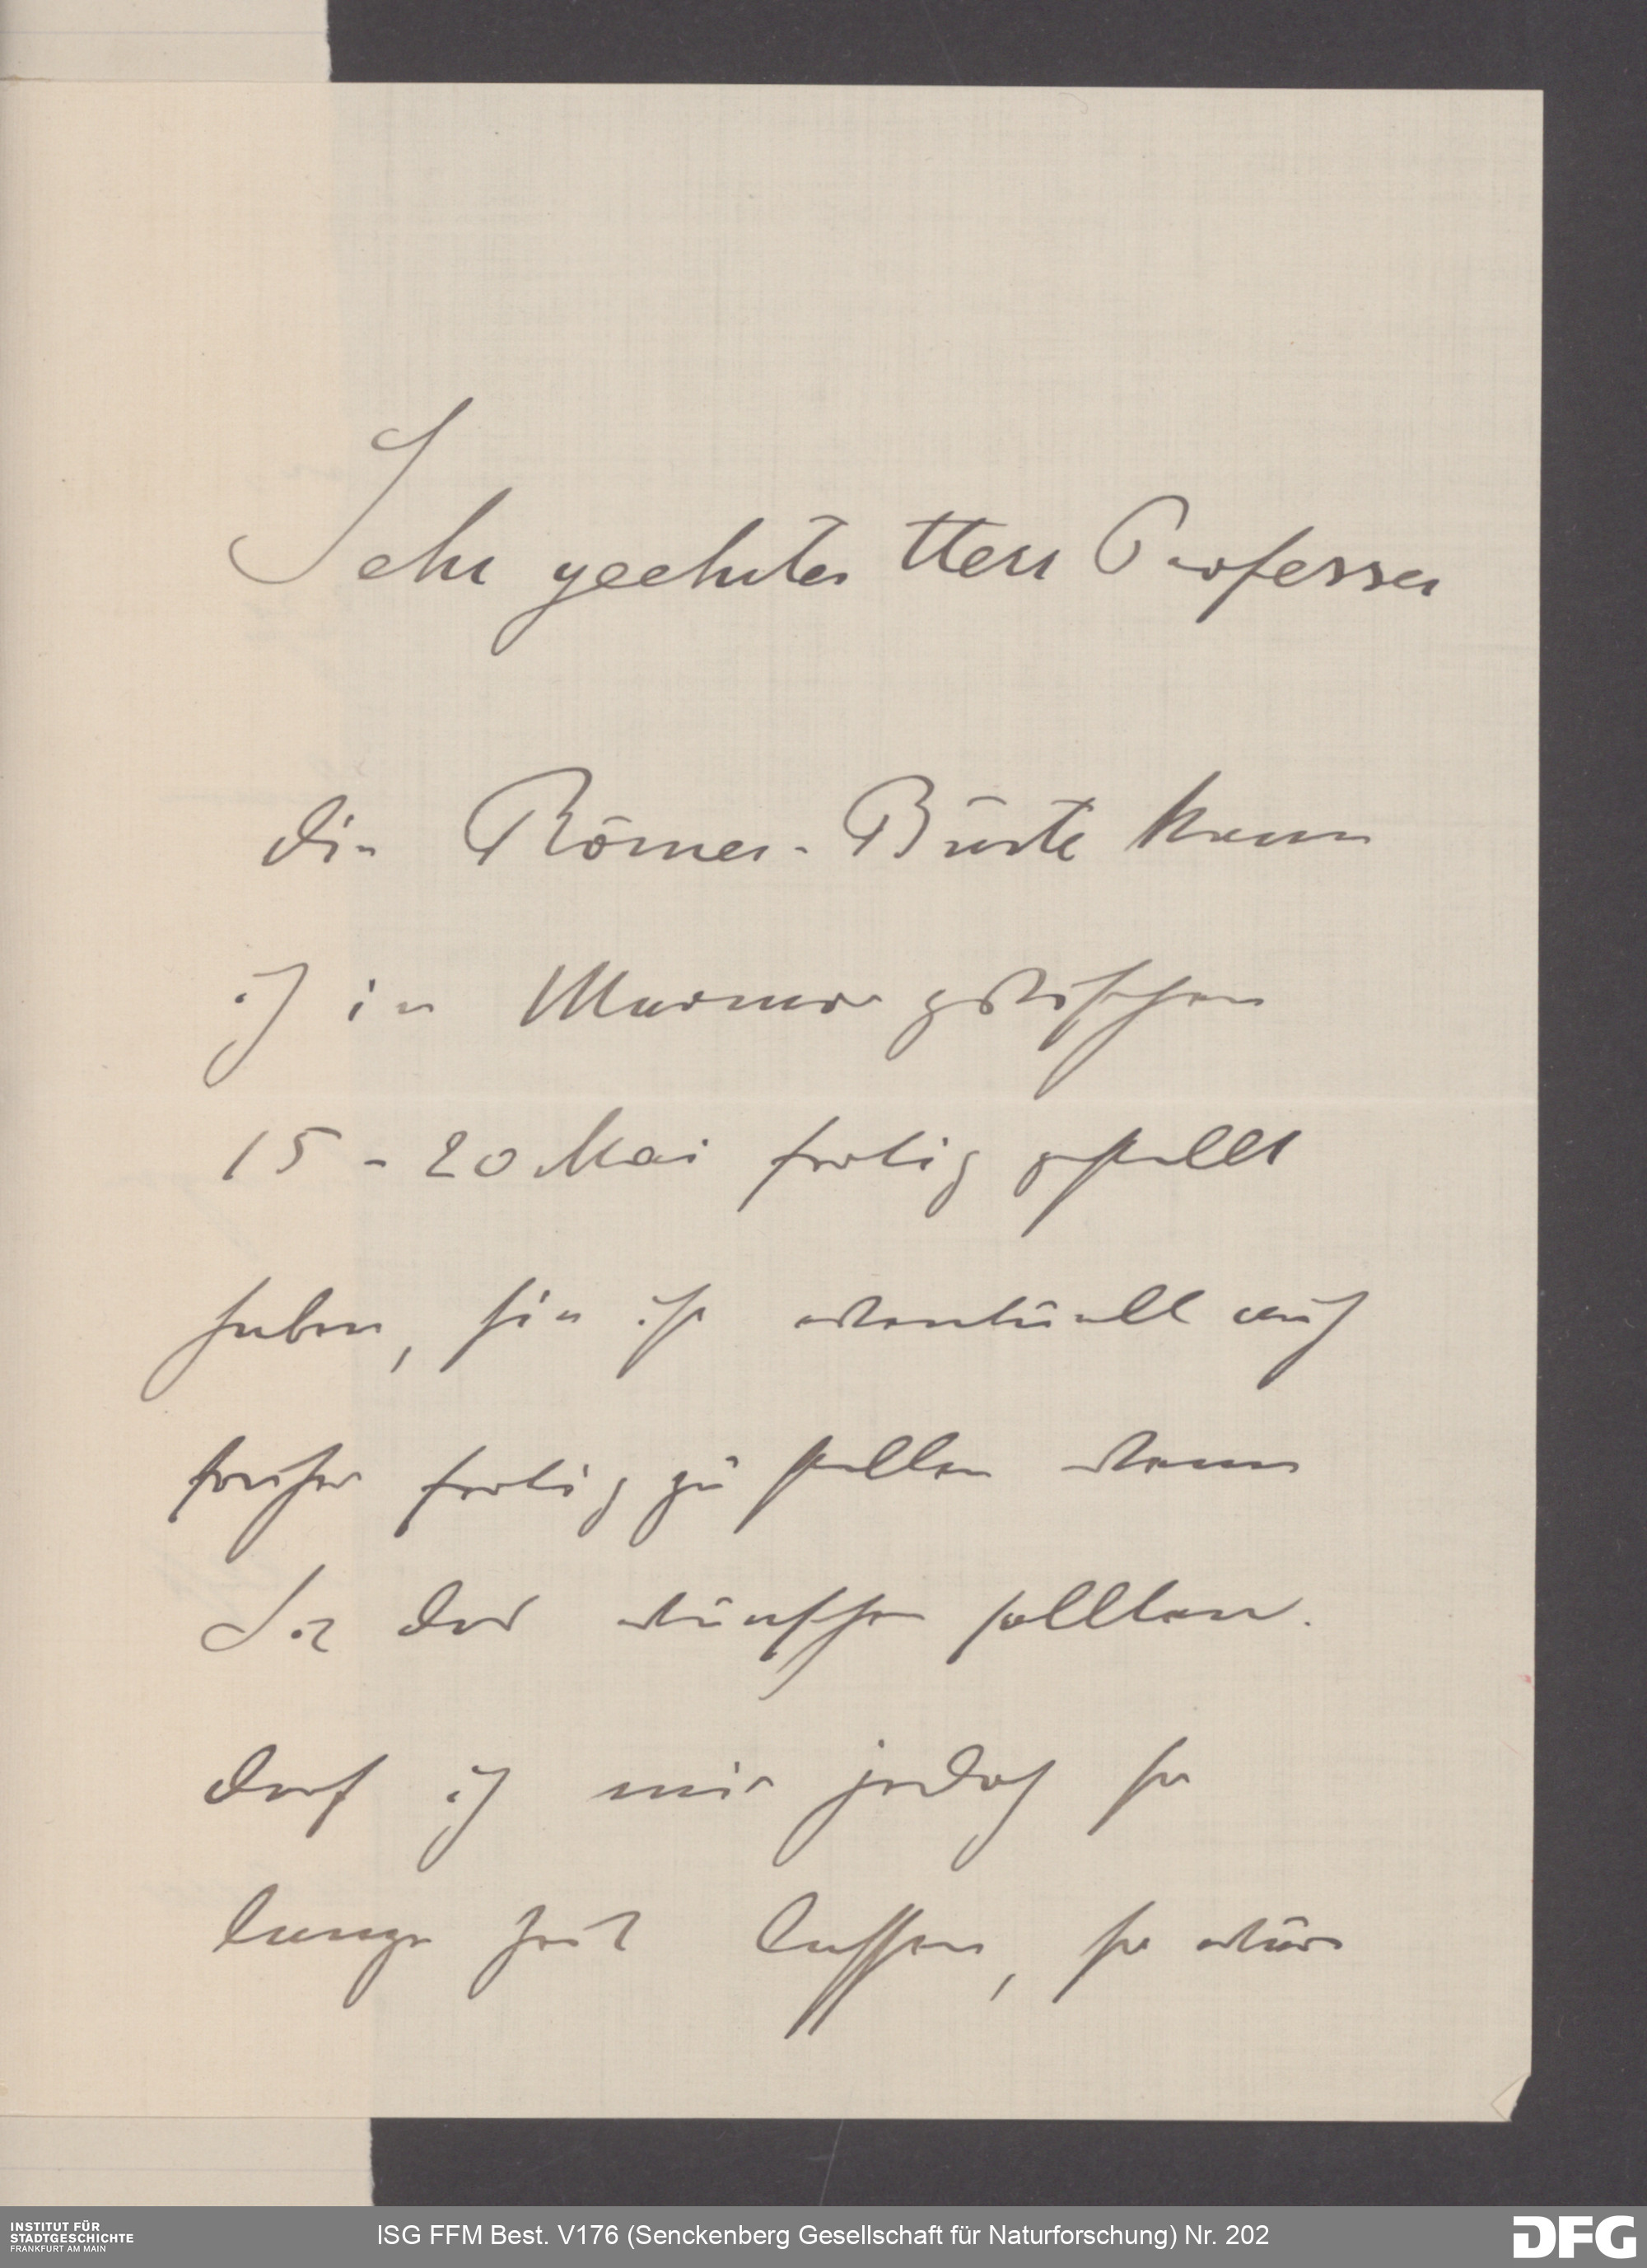 Sehr geehrter Herr Professor
die Römer-Büste kann
ich in Marmor zwischen
15-20 Mai fertig gestellt
haben, sie ist eventuell auch
früher fertig zu stellen wenn
Sie das wünschen sollten.
darf ich mir jedoch so
lange Zeit lassen, so wäre
INSTITUT FÜR
STADTGESCHICHTE
FRANKFURT AM MAIN
ISG FFM Best. V176 (Senckenberg Gesellschaft für Naturforschung) Nr. 202
DFG